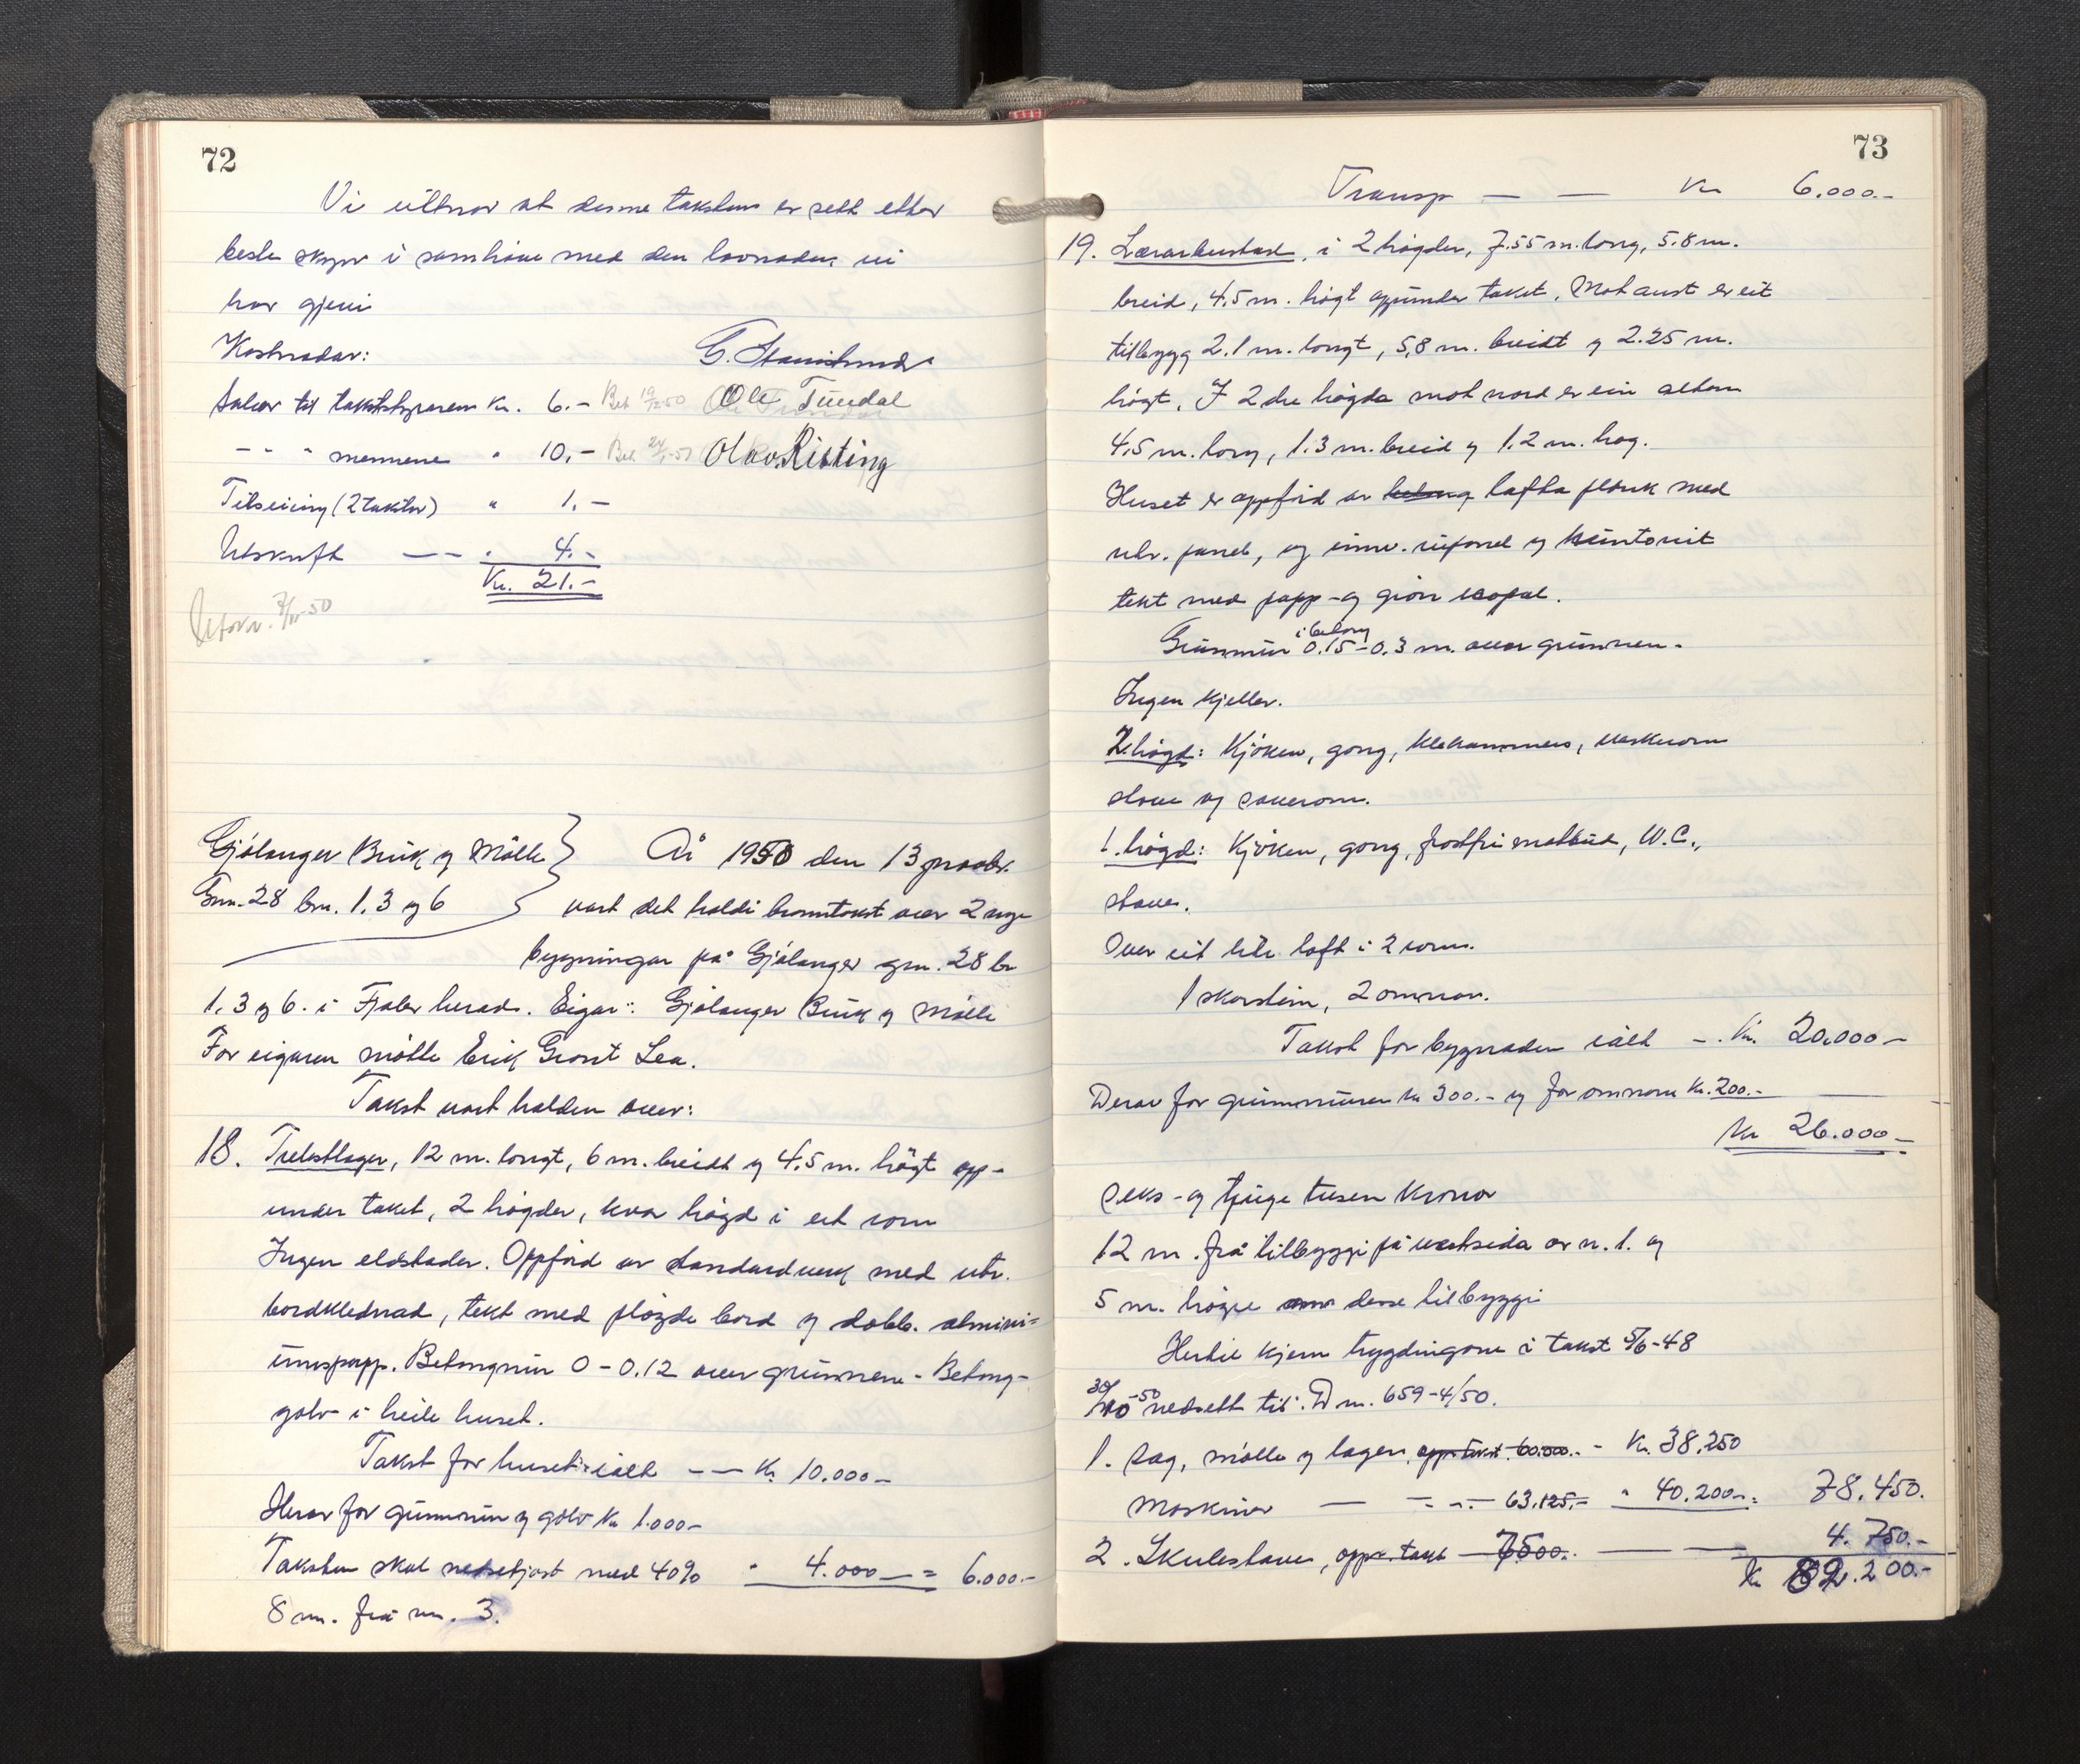 72
Vi vitnar at denne taksten er sett etter
beste skyn i samhøve med den lovnaden vi
har gjevi
Kostnadar:
Ole Tundal
Salær til takststyraren Kr. 6.-
- " - " mennene " 10,- Olav Risting
Tilseiing (2 takster) " 1.-
Utskrift — — " 4.-
Kr. 21.-
Utskr. 7/11-50
Gjølanger Bruk og Mølle
Gnr. 28 bnr. 1. 3 og 6
År 1950 den 13 novbr.
vart det haldi branntakst over 2 nye
bygningar på Gjølanger gnr. 28 br
1. 3 og 6. i Fjaler herad. Eigar: Gjølanger Bruk og Mølle
For eigaren møtte Erik Grant Lea.
Takst vart halden over:
18. Trelastlager, 12 m. langt, 6 m. breidt og 4.5 m. høgt opp-
under taket, 2 høgder, kvar høgd i eit rom
Ingen eldstader. Oppførd av standardverk med utv.
bordklednad, tekt med pløgde bord og dobb. alumini=
umspapp. Betongmur 0-0.12 over grunnen - Betong-
golv i heile huset.
Takst for huset ialt — — Kr. 10.000-
Herav for grunnmur og golv Kr 1.000-
Taksten skal nedsetjast med 40% " 4.000 — = 6.000.-
8 m. frå nr. 3.
73
Transp — — Kr 6.000.-
19. Lærarbustad, i 2 høgder, 7.55 m. lang, 5.8 m.
breid, 4.5 m. høgt oppunder taket. Mot aust er eit
tilbygg 2.1 m. langt, 5,8 m. breidt og 2.25 m.
høgt. I 2dre høgda mot nord er ein altan
4,5 m. lang, 1.3 m. breid og 1.2 m. høg.
Huset er oppførd av betong lafta plank med
utv. panel, og innv. rupanel og huntonit
tekt med papp- og grøn skopal.
i betong
Grunnmur 0.15-0.3 m. over grunnen.
Ingen kjeller.
2. høgd: Kjøken, gang, klekammers, vaskerom
stove og soverom.
1. høgd: Kjøken, gang, frostfri matbud, W.C.,
stove.
Over eit lite loft i 2 rom.
1 skorstein, 2 omnar.
Takst for bygnaden ialt - . Kr. 20.000-
Derav for grunnmuren kr 300.- og for omnane Kr. 200.-
Kr 26.000-
Seks- og tjuge tusen kronor
12 m. frå tilbyggi på vestsida av nr. 1. og
5 m. høgre enn desse tilbyggi
Hertil kjem trygdingane i takst 5/6-48
30/10-50 nedsett til: D nr. 659-4/50.
1. Sag, mølle og lager, opp. takst 60.000.- - Kr. 38.250
Maskiner — - - - 63.125.- " 40.200.- 78.450.
2. Skulestove, oppr. takst 7500.- — — 4.750.-
Kr 82.200.-